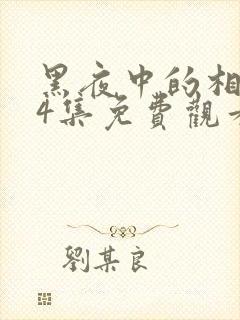 黑夜中的相
4集免費觀看
劉某良